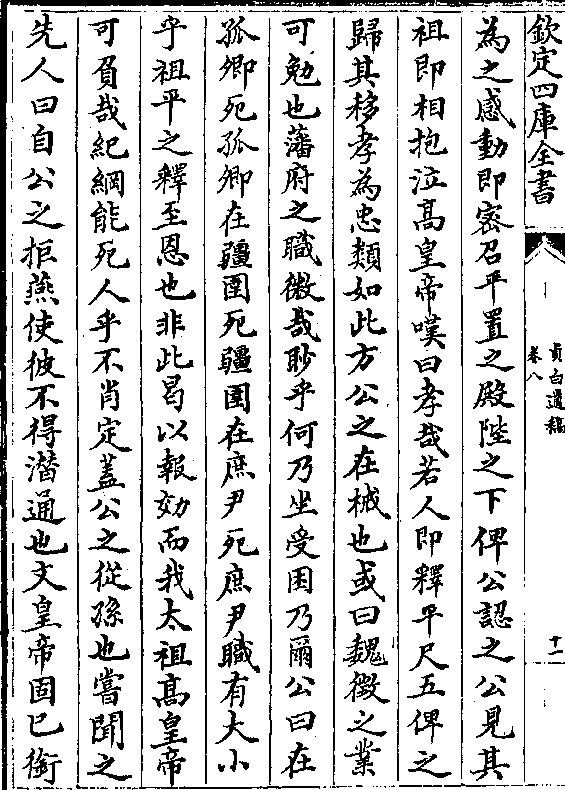 欽定四庫全書
貞白遺稿
卷八
十一
為之感動即密召平置之殿陛之下俾公認之公見其
祖即相抱泣高皇帝嘆曰孝哉若人即釋平尺五俾之
歸其移孝為忠類如此方公之在械也或曰魏徵之業
可勉也藩府之職微哉眇乎何乃坐受困乃爾公曰在
孤卿死孤卿在疆圉死疆圉在庶尹死庶尹職有大小
乎祖平之釋至恩也非此曷以報効而我太祖高皇帝
可負哉紀綱能死人乎不肖定蓋公之從孫也嘗聞之
先人曰自公之拒燕使彼不得潛通也文皇帝固已銜